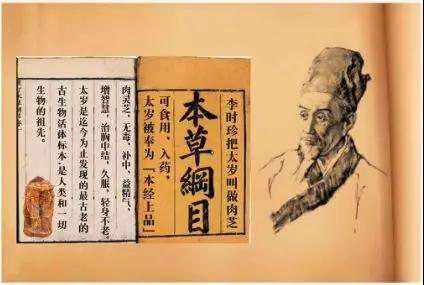 李时珍把太岁叫做肉芝
本草綱目
可食用、入药，
太岁被奉为「本经上品」
肉灵芝，无毒、补中、益精气、
增智慧，治胸中结，久服，轻身不老。
太岁是迄今为止发现的最古老的
古生物活体标本，是人类和一切
生物的祖先。